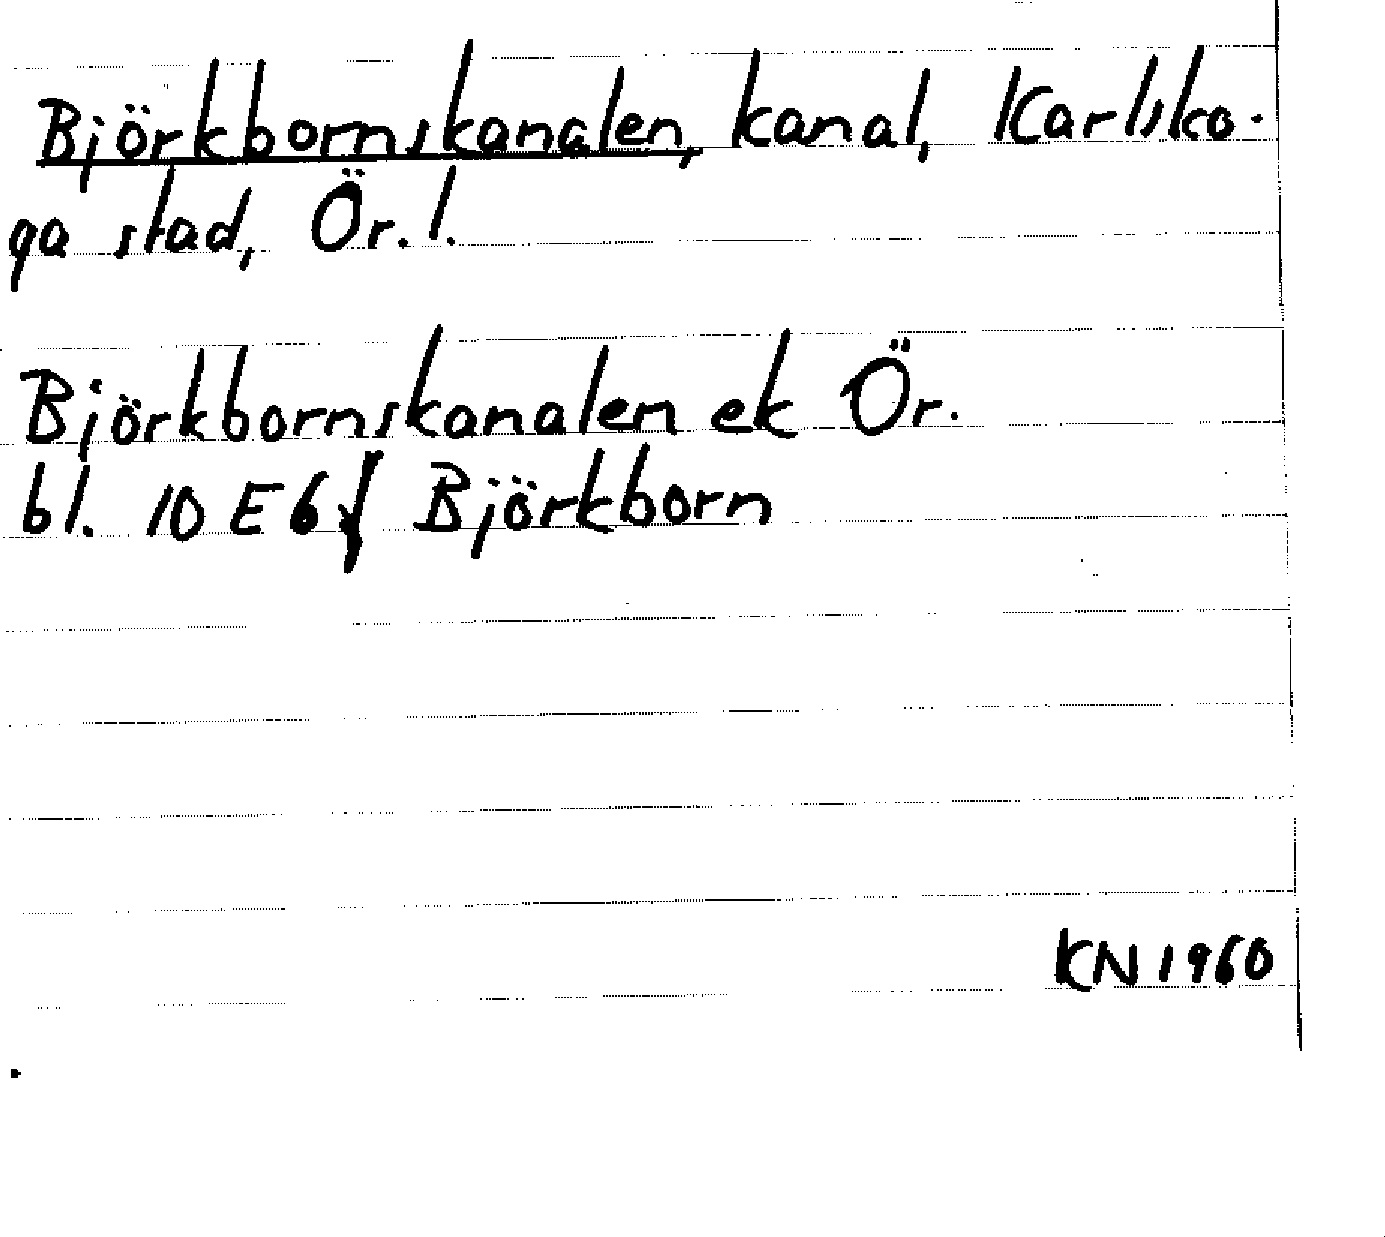 Björkbornskanalen, kanal, Karlsko-
ga stad, Ör. l.
Björkbornskanalen ek Ör.
bl. 10 E 6 f Björkborn
KN 1960